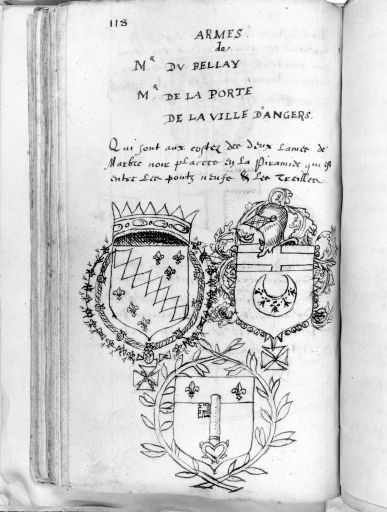 118
ARMES
de
Mr DV BELLAY
Mr DE LA PORTE
DE LA VILLE D'ANGERS.
Qui sont aux costez des deux lames de
Marbre noir placees en la Piramide qui est
entre les pontz neufs & les Treilles